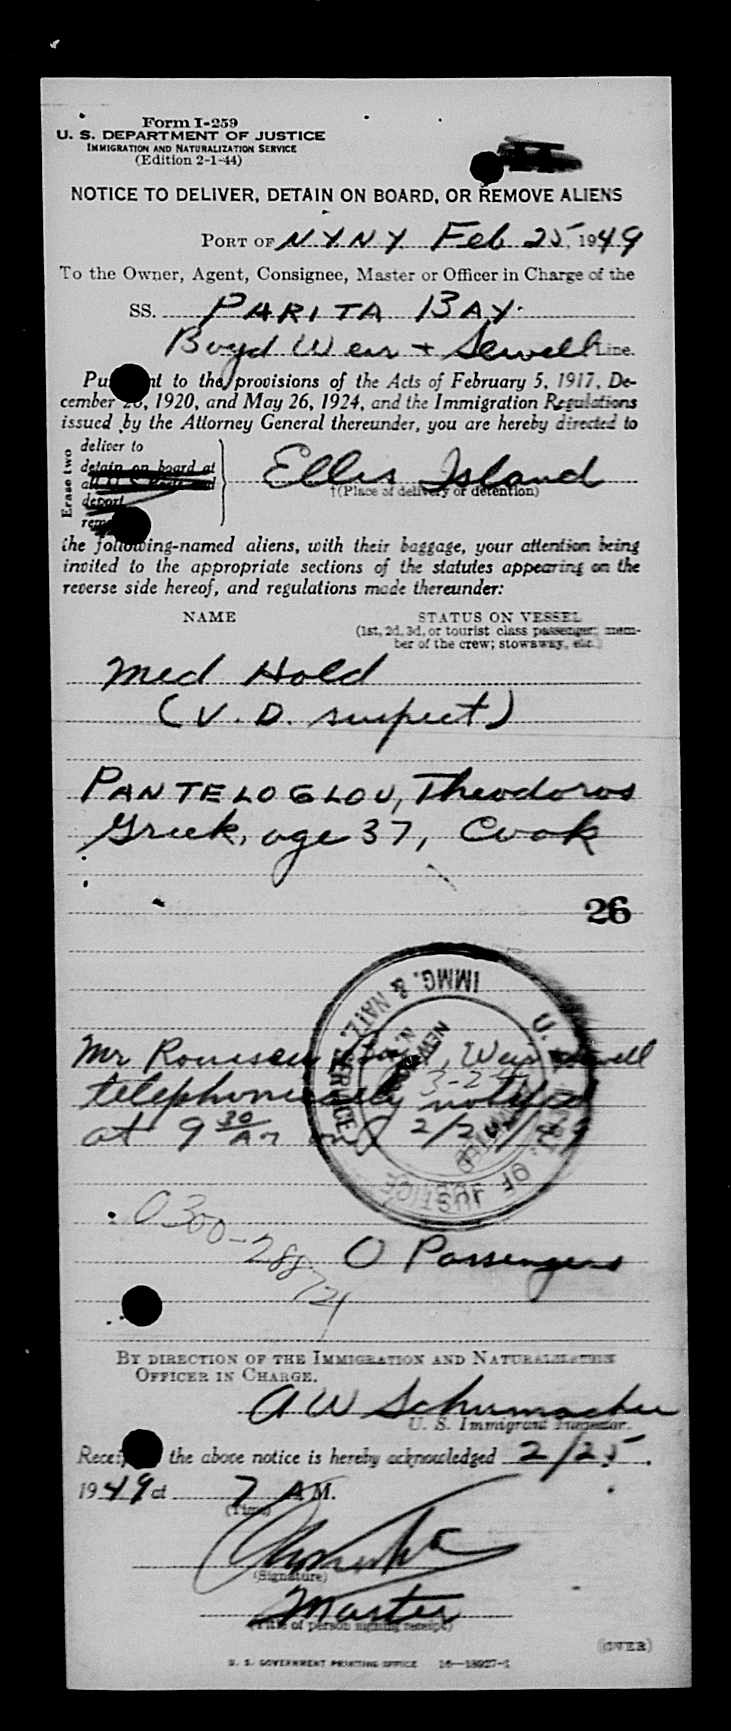 Form I-259
U. S. DEPARTMENT OF JUSTICE
IMMIGRATION AND NATURALIZATION SERVICE
(Edition 2-1-44)
NOTICE TO DELIVER, DETAIN ON BOARD, OR REMOVE ALIENS
PORT OF N.Y.N.Y. Feb 25, 1949
To the Owner, Agent, Consignee, Master or Officer in Charge of the
SS. PARITA BAY.
Boyd Weir + Sewell Line.
Pu nt to the provisions of the Acts of February 5, 1917, De-
cember 26, 1920, and May 26, 1924, and the Immigration Regulations
issued by the Attorney General thereunder, you are hereby directed to
Erase two
deliver to
detain on board at
deport
Ellis Island
†(Place of delivery or detention)
the following-named aliens, with their baggage, your attention being
invited to the appropriate sections of the statutes appearing on the
reverse side hereof, and regulations made thereunder:
NAME STATUS ON VESSEL
(1st, 2d, 3d, or tourist class passenger; mem-
ber of the crew; stowaway, etc.)
Med Hold
(V. D. suspect)
PANTELOGLOU, Theodoros
Greek, age 37, Cook
26
U. S. DEPT. OF JUSTICE
IMMG. & NATZ. SERVICE
Mr , Weir
telephonically notified
at 9 30/AM on 2/2 /49
0300-28872
0 Passengers
BY DIRECTION OF THE IMMIGRATION AND NATURALIZATION
OFFICER IN CHARGE.
A W Schumacher
U. S. Immigrant Inspector.
Recei the above notice is hereby acknowledged 2/25.
1949 at 7 A M.
(Time)
(Signature)
Master
(Title of person signing receipt)
(OVER)
U. S. GOVERNMENT PRINTING OFFICE 16—18927-1